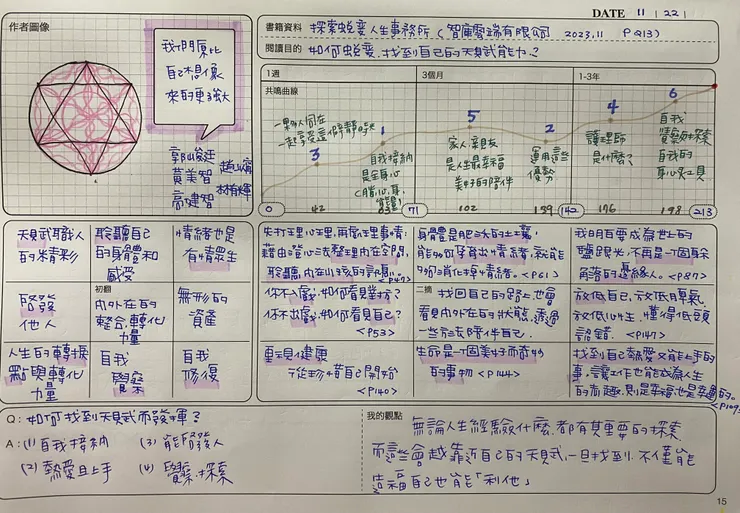 DATE 11 | 22 |
作者圖像
我們原比
自己想像
來的更強大
郭峻廷
黃美智
高建智
書籍資料 探索蛻變人生事務所(智庫雲端有限公司 2023.11 P213)
閱讀目的 如何蛻變、找到自己的天賦能力?
1週
3個月
1-3年
共鳴曲線
1
3
自我接納
是全身心
5
家人、親友
是人生最幸福
美好的陪伴
2
運用這些
優勢
4
護理師
是什麼?
6
自我
覺察的探索
自我的
身心靈工具
0
42
63
71
102
139
142
176
198
213
天賦職人
的精彩
聆聽自己
的身體和
感受
情緒也是
有情眾生
啟發
他人
初翻
內外在的
整合、轉化
力量
無形的
資產
人生的轉換
點與轉化
力量
自我
覺察
自我
修復
失打理心理,再處理事情:
藉由這心法整理內在空間,
聆聽內在小孩的
你不, 如何看見對方?
你不, 如何看見自己?
<P53>
重見健康
→從珍惜自己開始
<P140>
身體是肥沃的土壤,
能夠孕育出情緒,就能
夠消化掉情緒。<P61>
二摘
找回自己的路上也會
看見內外在的狀態,透過
一些方式陪伴自己。
生命是一個美好而奇妙
的事物 <P144>
我明白要成為世上的
鹽跟光,不再是一個躲
角落的邊緣人。<P87>
放低自己、放低脾氣、
放低心性、懂得低頭
認錯. <P147>
找到自己熱愛又能上手的
事,讓工作也能成為人生
的志趣,則是幸福也是幸運的。
Q: 如何找到天賦而發揮?
A: (1) 自我接納
(3) 能啟發人
(2) 熱愛且上手
(4) 覺察、探索
我的觀點
無論人生經驗什麼, 都有其重要的探索,
而這些會越靠近自己的天賦,一旦找到,不僅能
造福自己也能「利他」
15